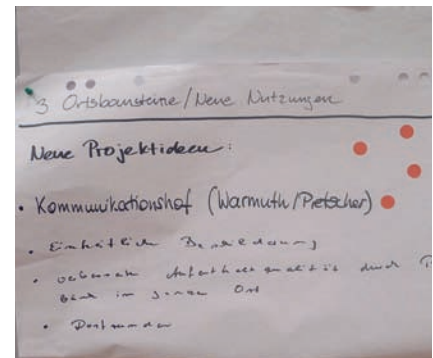 3 Ortsbausteine/Neue Nutzungen
Neue Projektideen:
• Kommunikationshof (Warmuth/Pretscher)
• Einheitliche Beschilderung
• Aufenthaltsqualität durch
im ganzen Ort
•